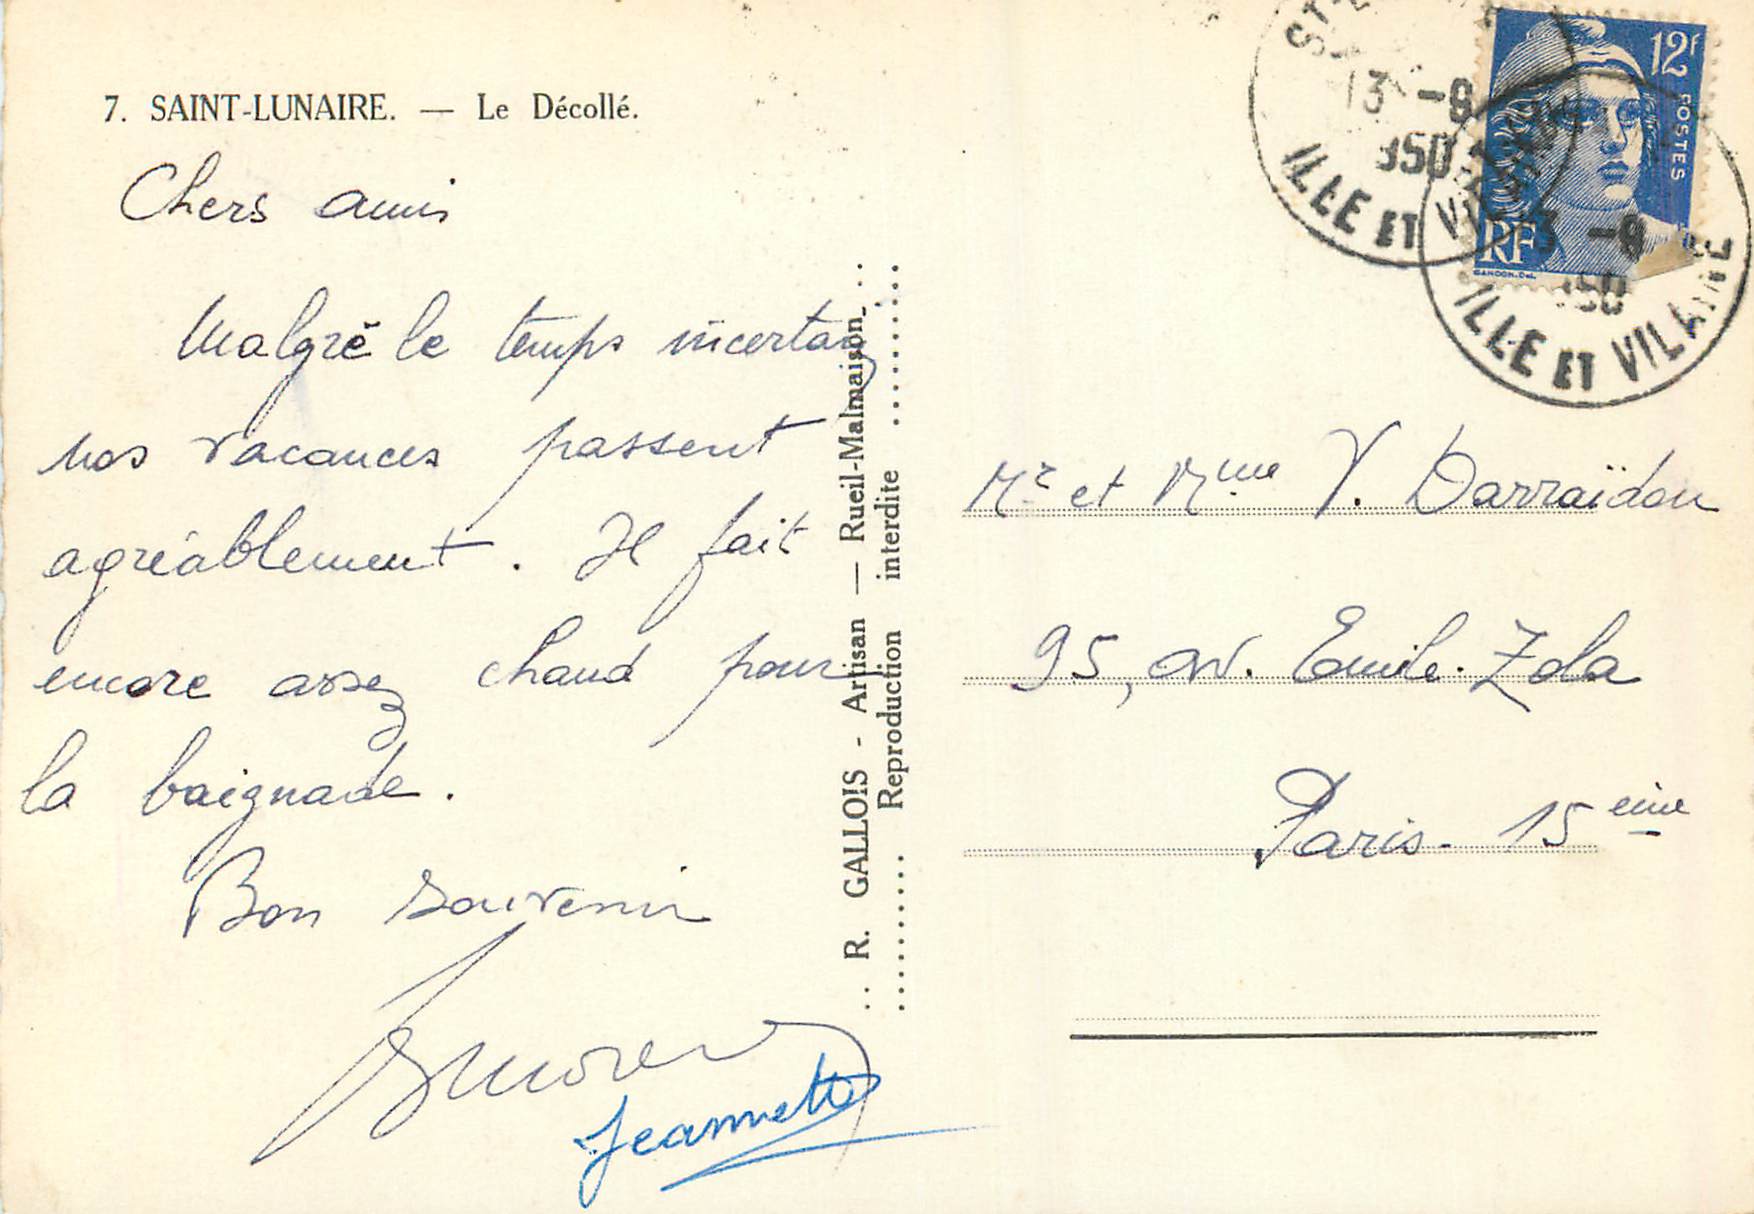 7. SAINT-LUNAIRE. — Le Décollé.
Chers amis
Malgré le temps incertain
nos vacances passent
agréablement. Il fait
encore assez chaud pour
la baignade.
Bon souvenir
Jeannette
R. GALLOIS - Artisan — Rueil-Malmaison
Reproduction interdite
12F
POSTES
RF
GANDON.Del.
13 -9
950
ILLE ET
3 -9
950
ILLE ET VILAINE
Mr et Mme V. Darraïdou
95, av. Emile-Zola
Paris-15ème